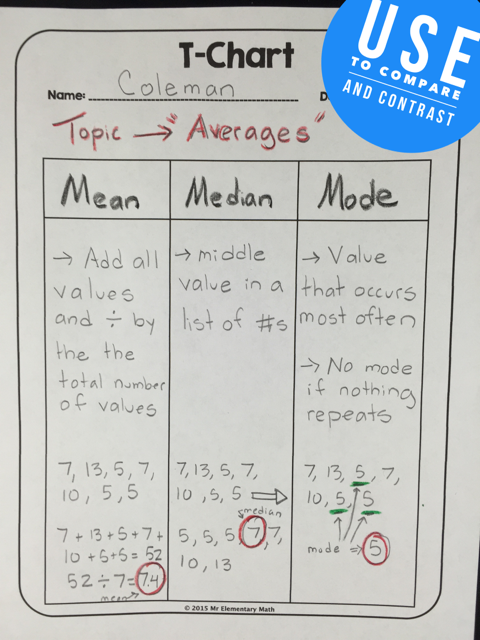 T-Chart
USE
TO COMPARE
AND CONTRAST
Name: Coleman
D
Topic → "Averages"
Mean
→ Add all
values
and ÷ by
the the
total number
of values
7, 13, 5, 7,
10, 5, 5
7 + 13 + 5 + 7 +
10 + 5 + 5 = 52
52 ÷ 7 = 7.4
mean→
Median
→ middle
value in a
list of #s
7, 13, 5, 7,
10, 5, 5 ⇒
median
5, 5, 5, 7, 7,
10, 13
Mode
→ Value
that occurs
most often
→ No mode
if nothing
repeats
7, 13, 5, 7,
10, 5, 5
mode ⇒ 5
© 2015 Mr Elementary Math